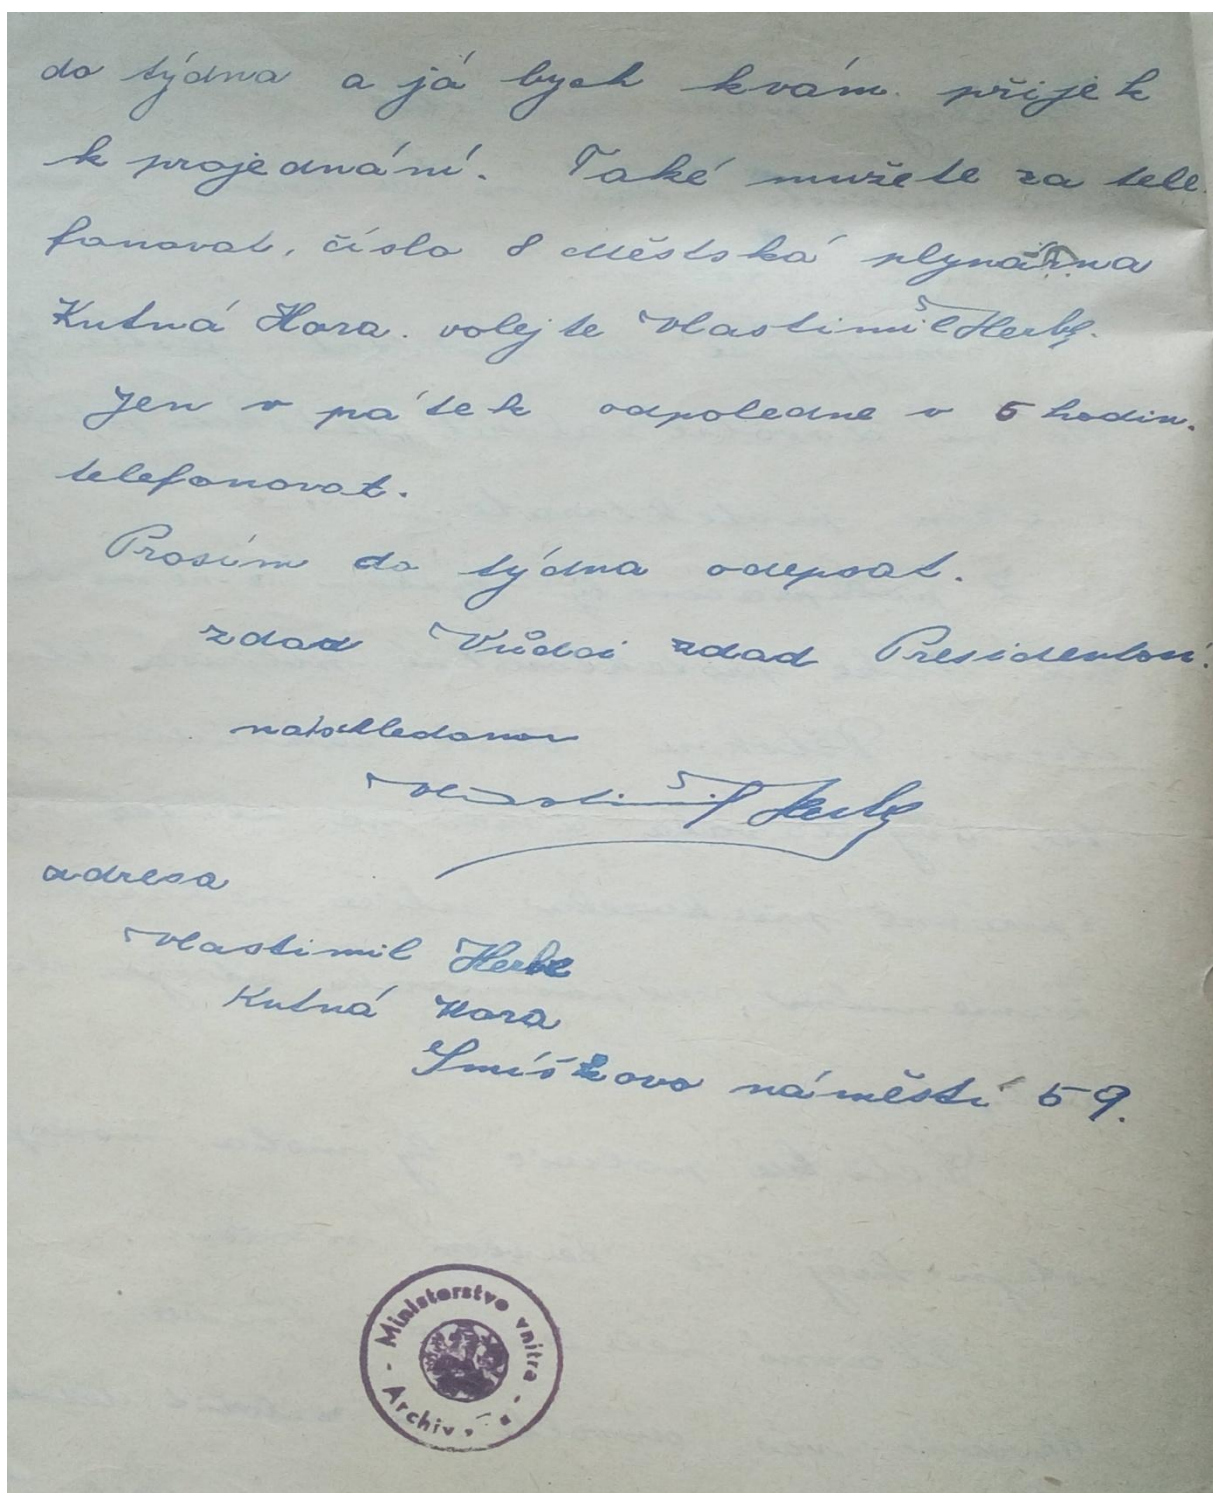 do týdna a já bych kvám přijek
k projednání. Také mužete za tele
fonovat, číslo 8 Městská plynárna
Kutná Hora. volejte Vlastimil Herbs.
Jen v pátek odpoledne v 5 hodin.
telefonovat.
Prosím do týdna odepsat.
zdad Vůdci zdad Presidentovi.
naschledanou
Vlastimil
adresa
Vlastimil
Kutná Hora
Smíškovo náměstí 59.
- Ministerstvo vnitra -
Archiv